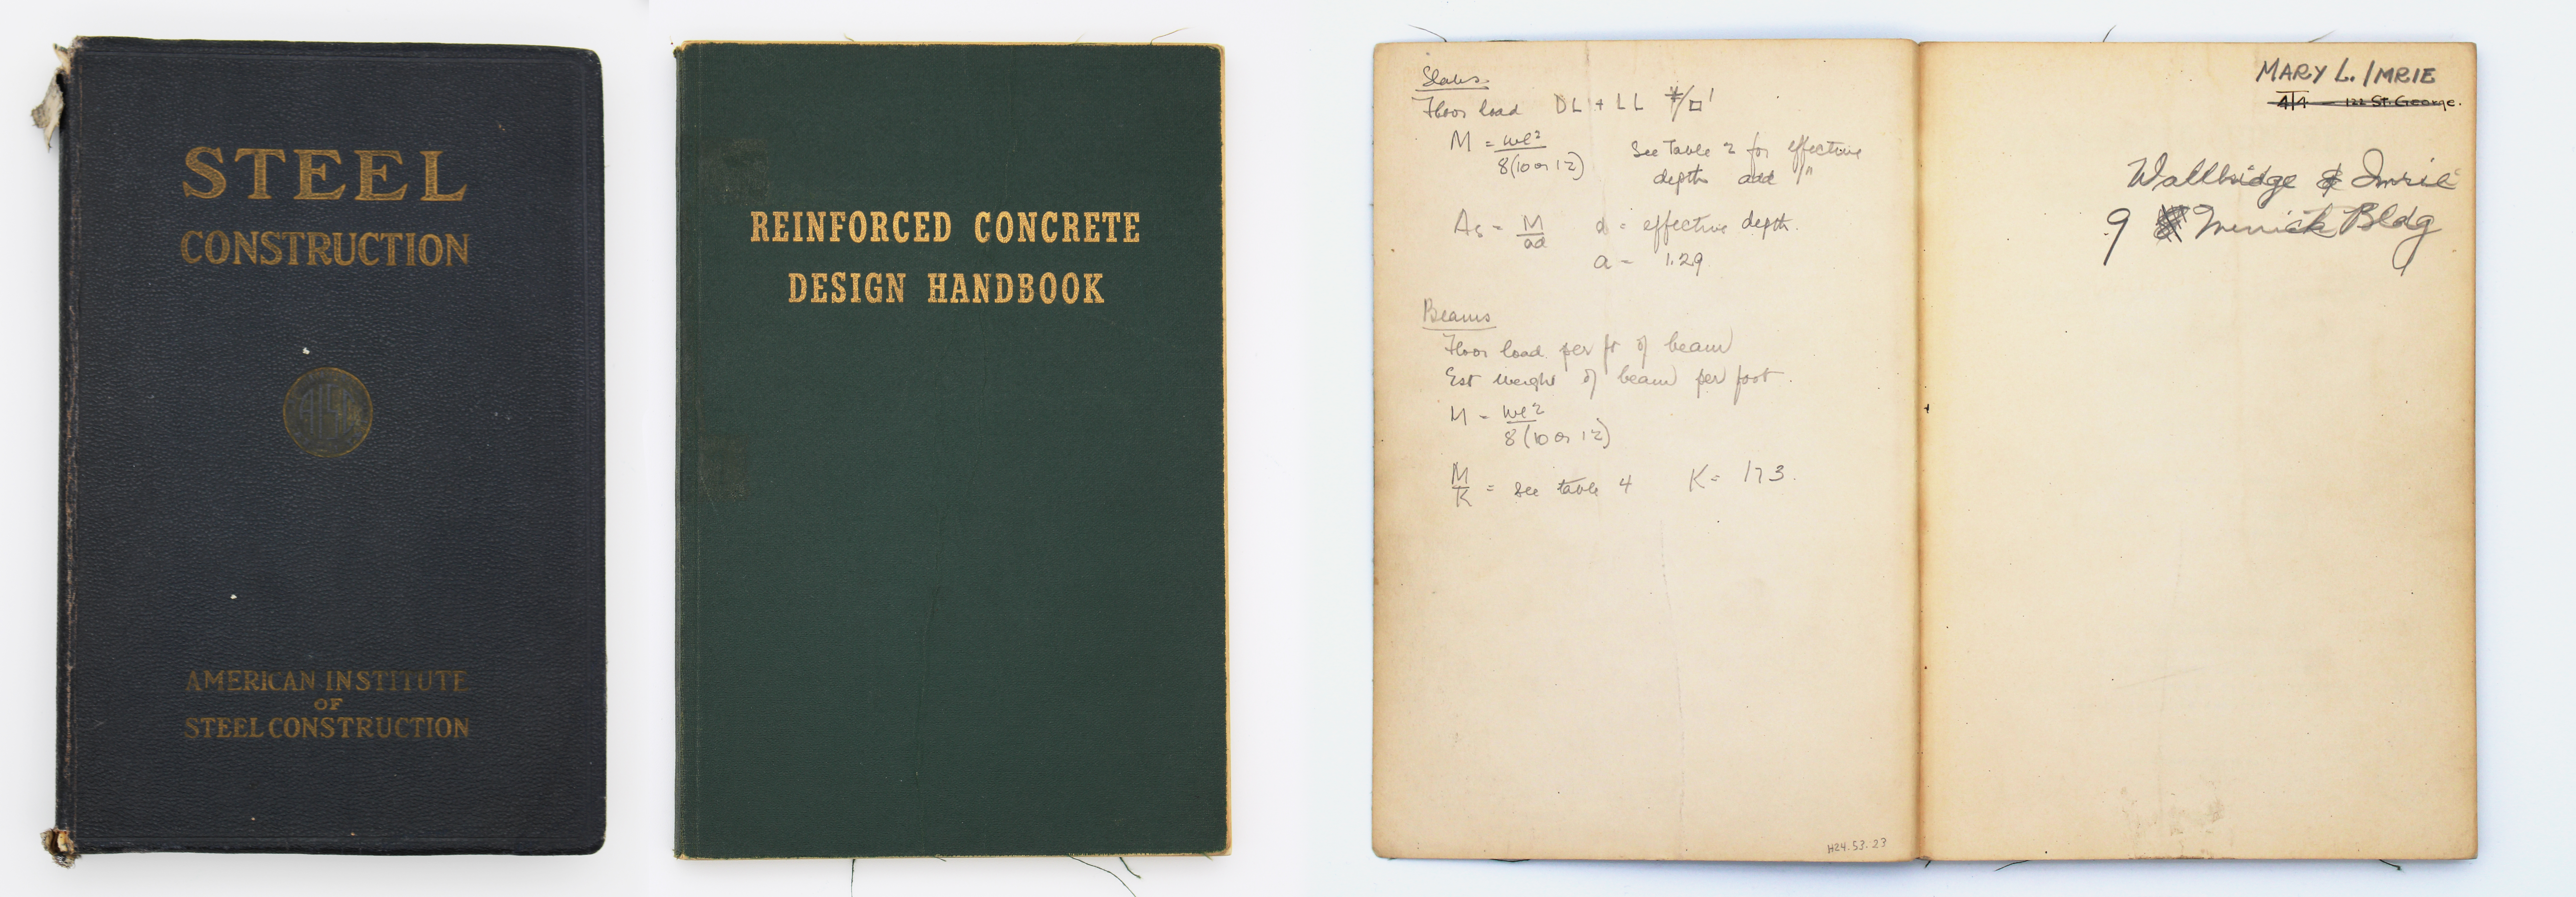 STEEL
CONSTRUCTION
AMERICAN INSTITUTE
OF
STEEL CONSTRUCTION
REINFORCED CONCRETE
DESIGN HANDBOOK
Slabs
Floor load DL + LL #/□'
M = wl²
8(10 or 12)
See Table 2 for effective
depth add 1"
As = M
ad
d = effective depth.
a = 1.29
Beams
Floor load per ft of beam
Est weight of beam per foot.
M = wl²
8(10 or 12)
M
K
= see table 4 K = 173.
H24.53.23
MARY L. IMRIE
4T4 122 St. George.
Wallbridge & Imrie
9 Merrick Bldg